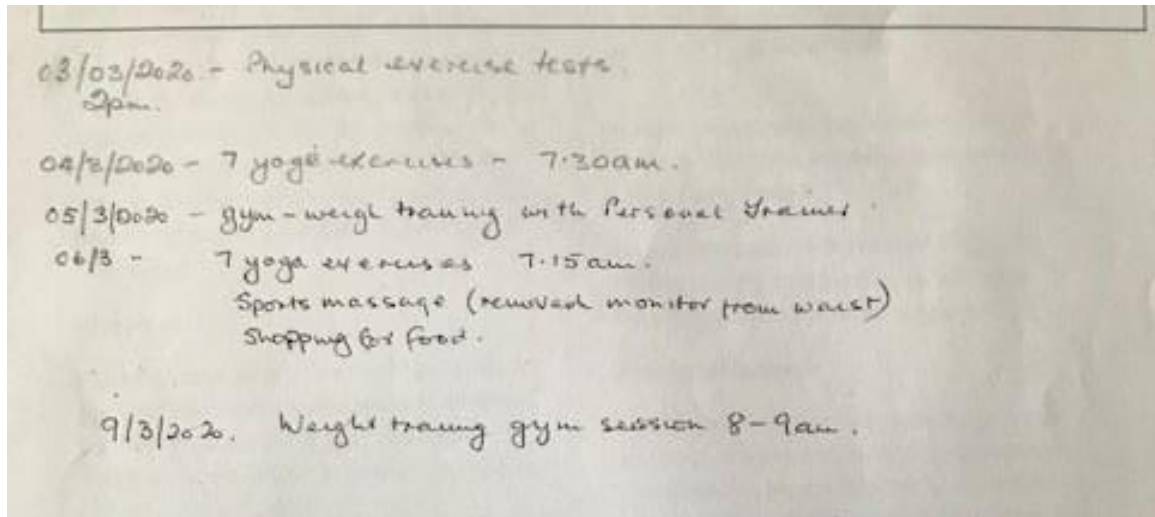 03/03/2020 - Physical exercise tests.
2pm.
04/3/2020 - 7 yoga exercises - 7.30am.
05/3/2020 - gym - weigt training with Personal Trainer.
06/3 - 7 yoga exercises 7.15am.
Sports massage (removed monitor from waist)
Shopping for food.
9/3/2020. Weight training gym session 8-9am.